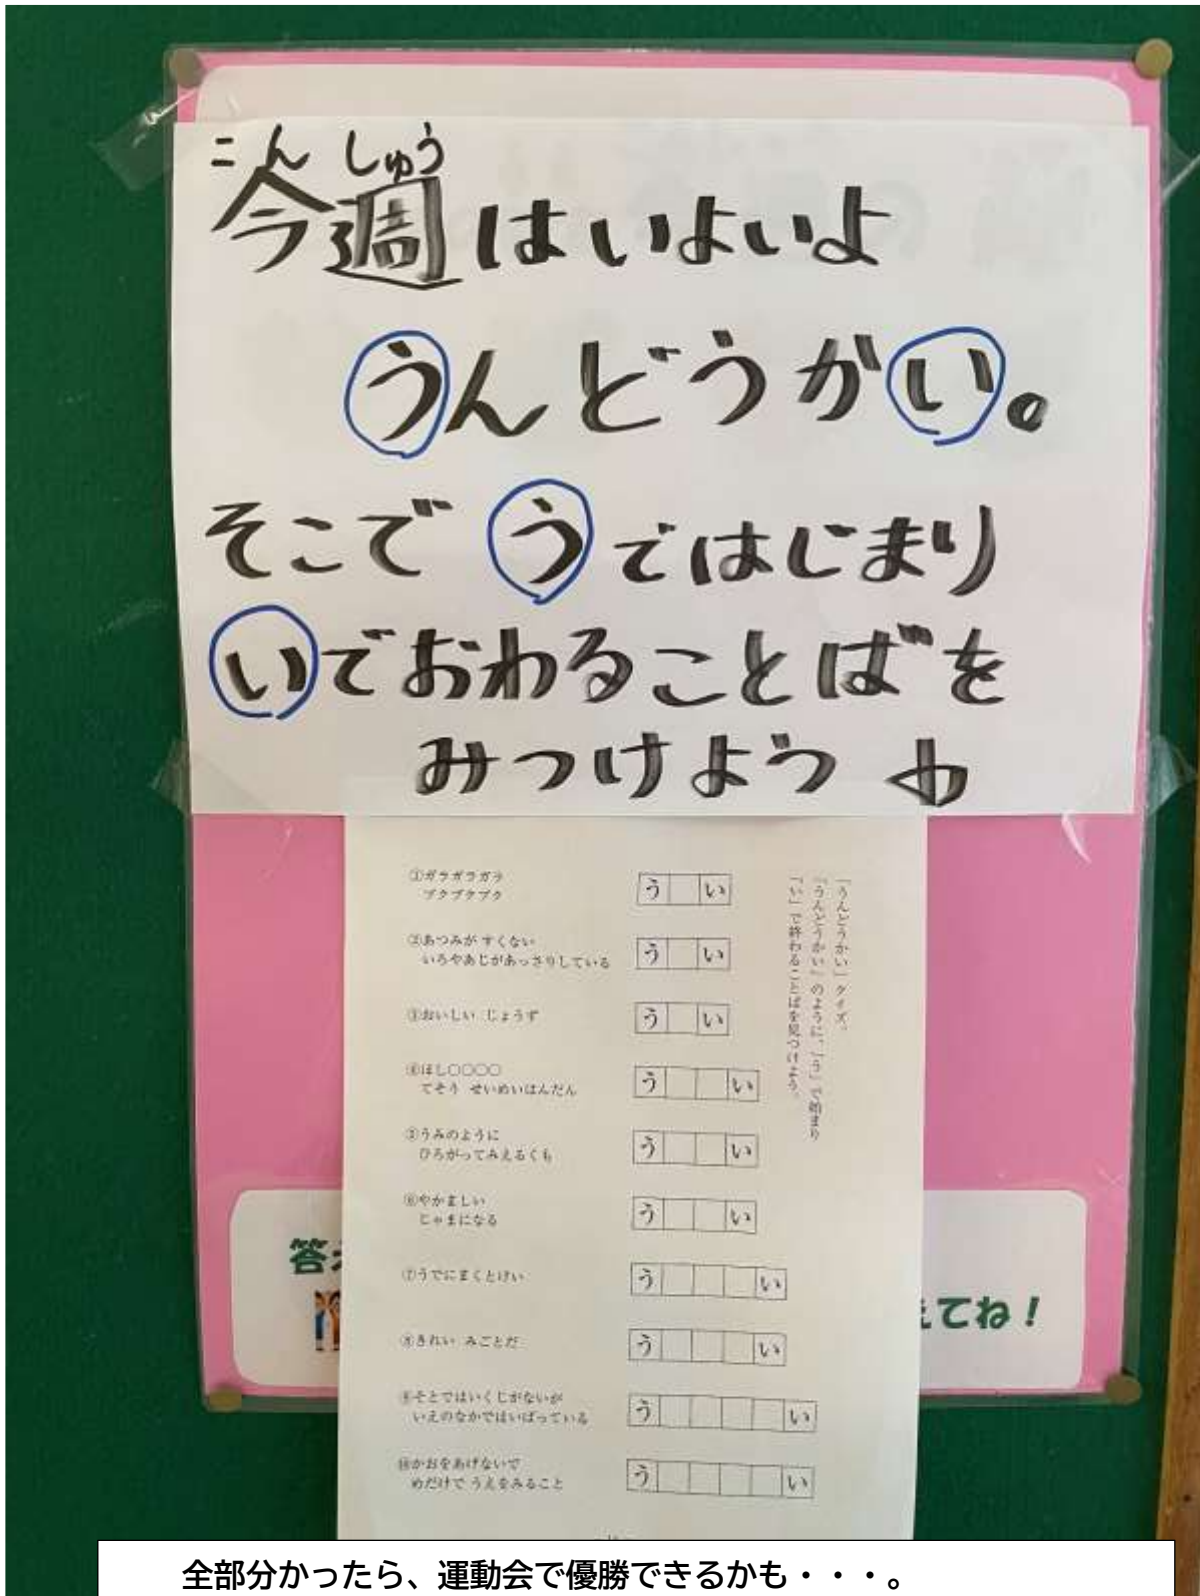 こんしゅう
今週はいよいよ
うんどうかい。
そこでうではじまり
いでおわることばを
みつけようゎ
「うんどうかい」クイズ。
「うんどうかい」のように、「う」で始まり
「い」で終わることばを見つけよう。
①ガラガラガラ
ブクブクブク
う い
②あつみが すくない
いろやあじがあっさりしている
う い
③おいしい じょうず
う い
④ほし〇〇〇〇
てそう せいめいはんだん
う い
⑤うみのように
ひろがってみえるくも
う い
⑥やかましい
じゃまになる
う い
⑦うでにまくとけい
う い
⑧きれい みごとだ
う い
⑨そとではいくじがないが
いえのなかではいばっている
う い
⑩かおをあげないで
めだけで うえをみること
う い
答
えてね!
全部分かったら、運動会で優勝できるかも・・・。